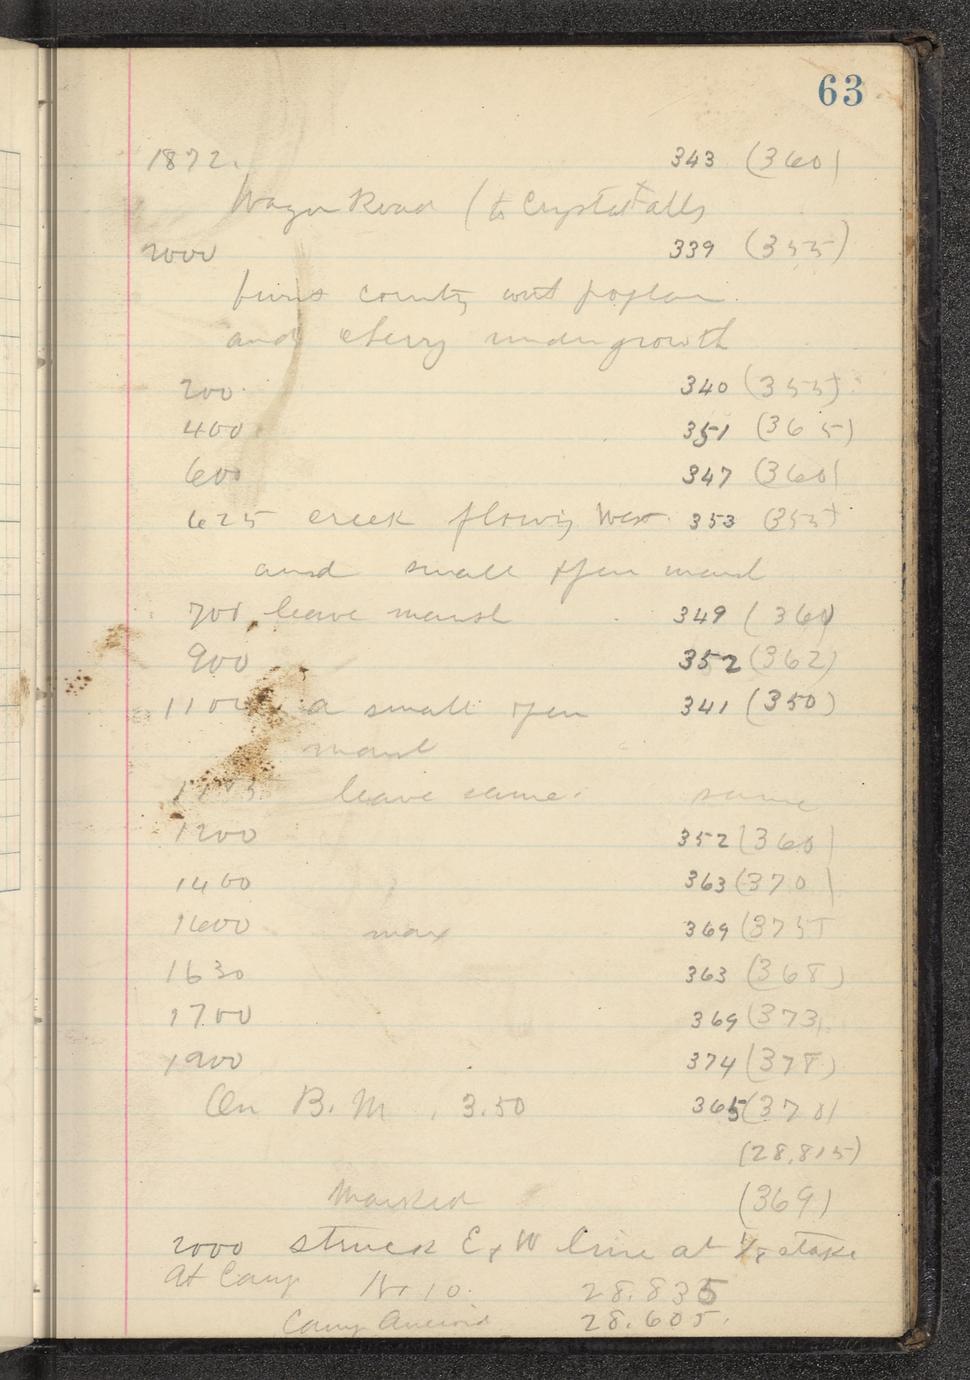 63
1872. 343 (360)
Wagon Road (to Crystal Falls
2000 339 (355)
burns country with poplar
and cherry undergrowth
200 340 (355)
400 351 (365)
600 347 (360)
625 creek flowing West 353 (355)
and small open marsh
700 leave marsh 349 (360)
900 352 (362)
1100 a small open 341 (350)
marsh
leave same. same
1200 352 (360)
1400 363 (370)
1600 max 369 (375)
1630 363 (368)
1700 369 (373)
1900 374 (378)
On B. M. 3.50 365 (370)
(28.815)
Marked (369)
2000 struck E & W line at 1/8 stake
At Camp No 10. 28.835
Camp Aneroid 28.605.